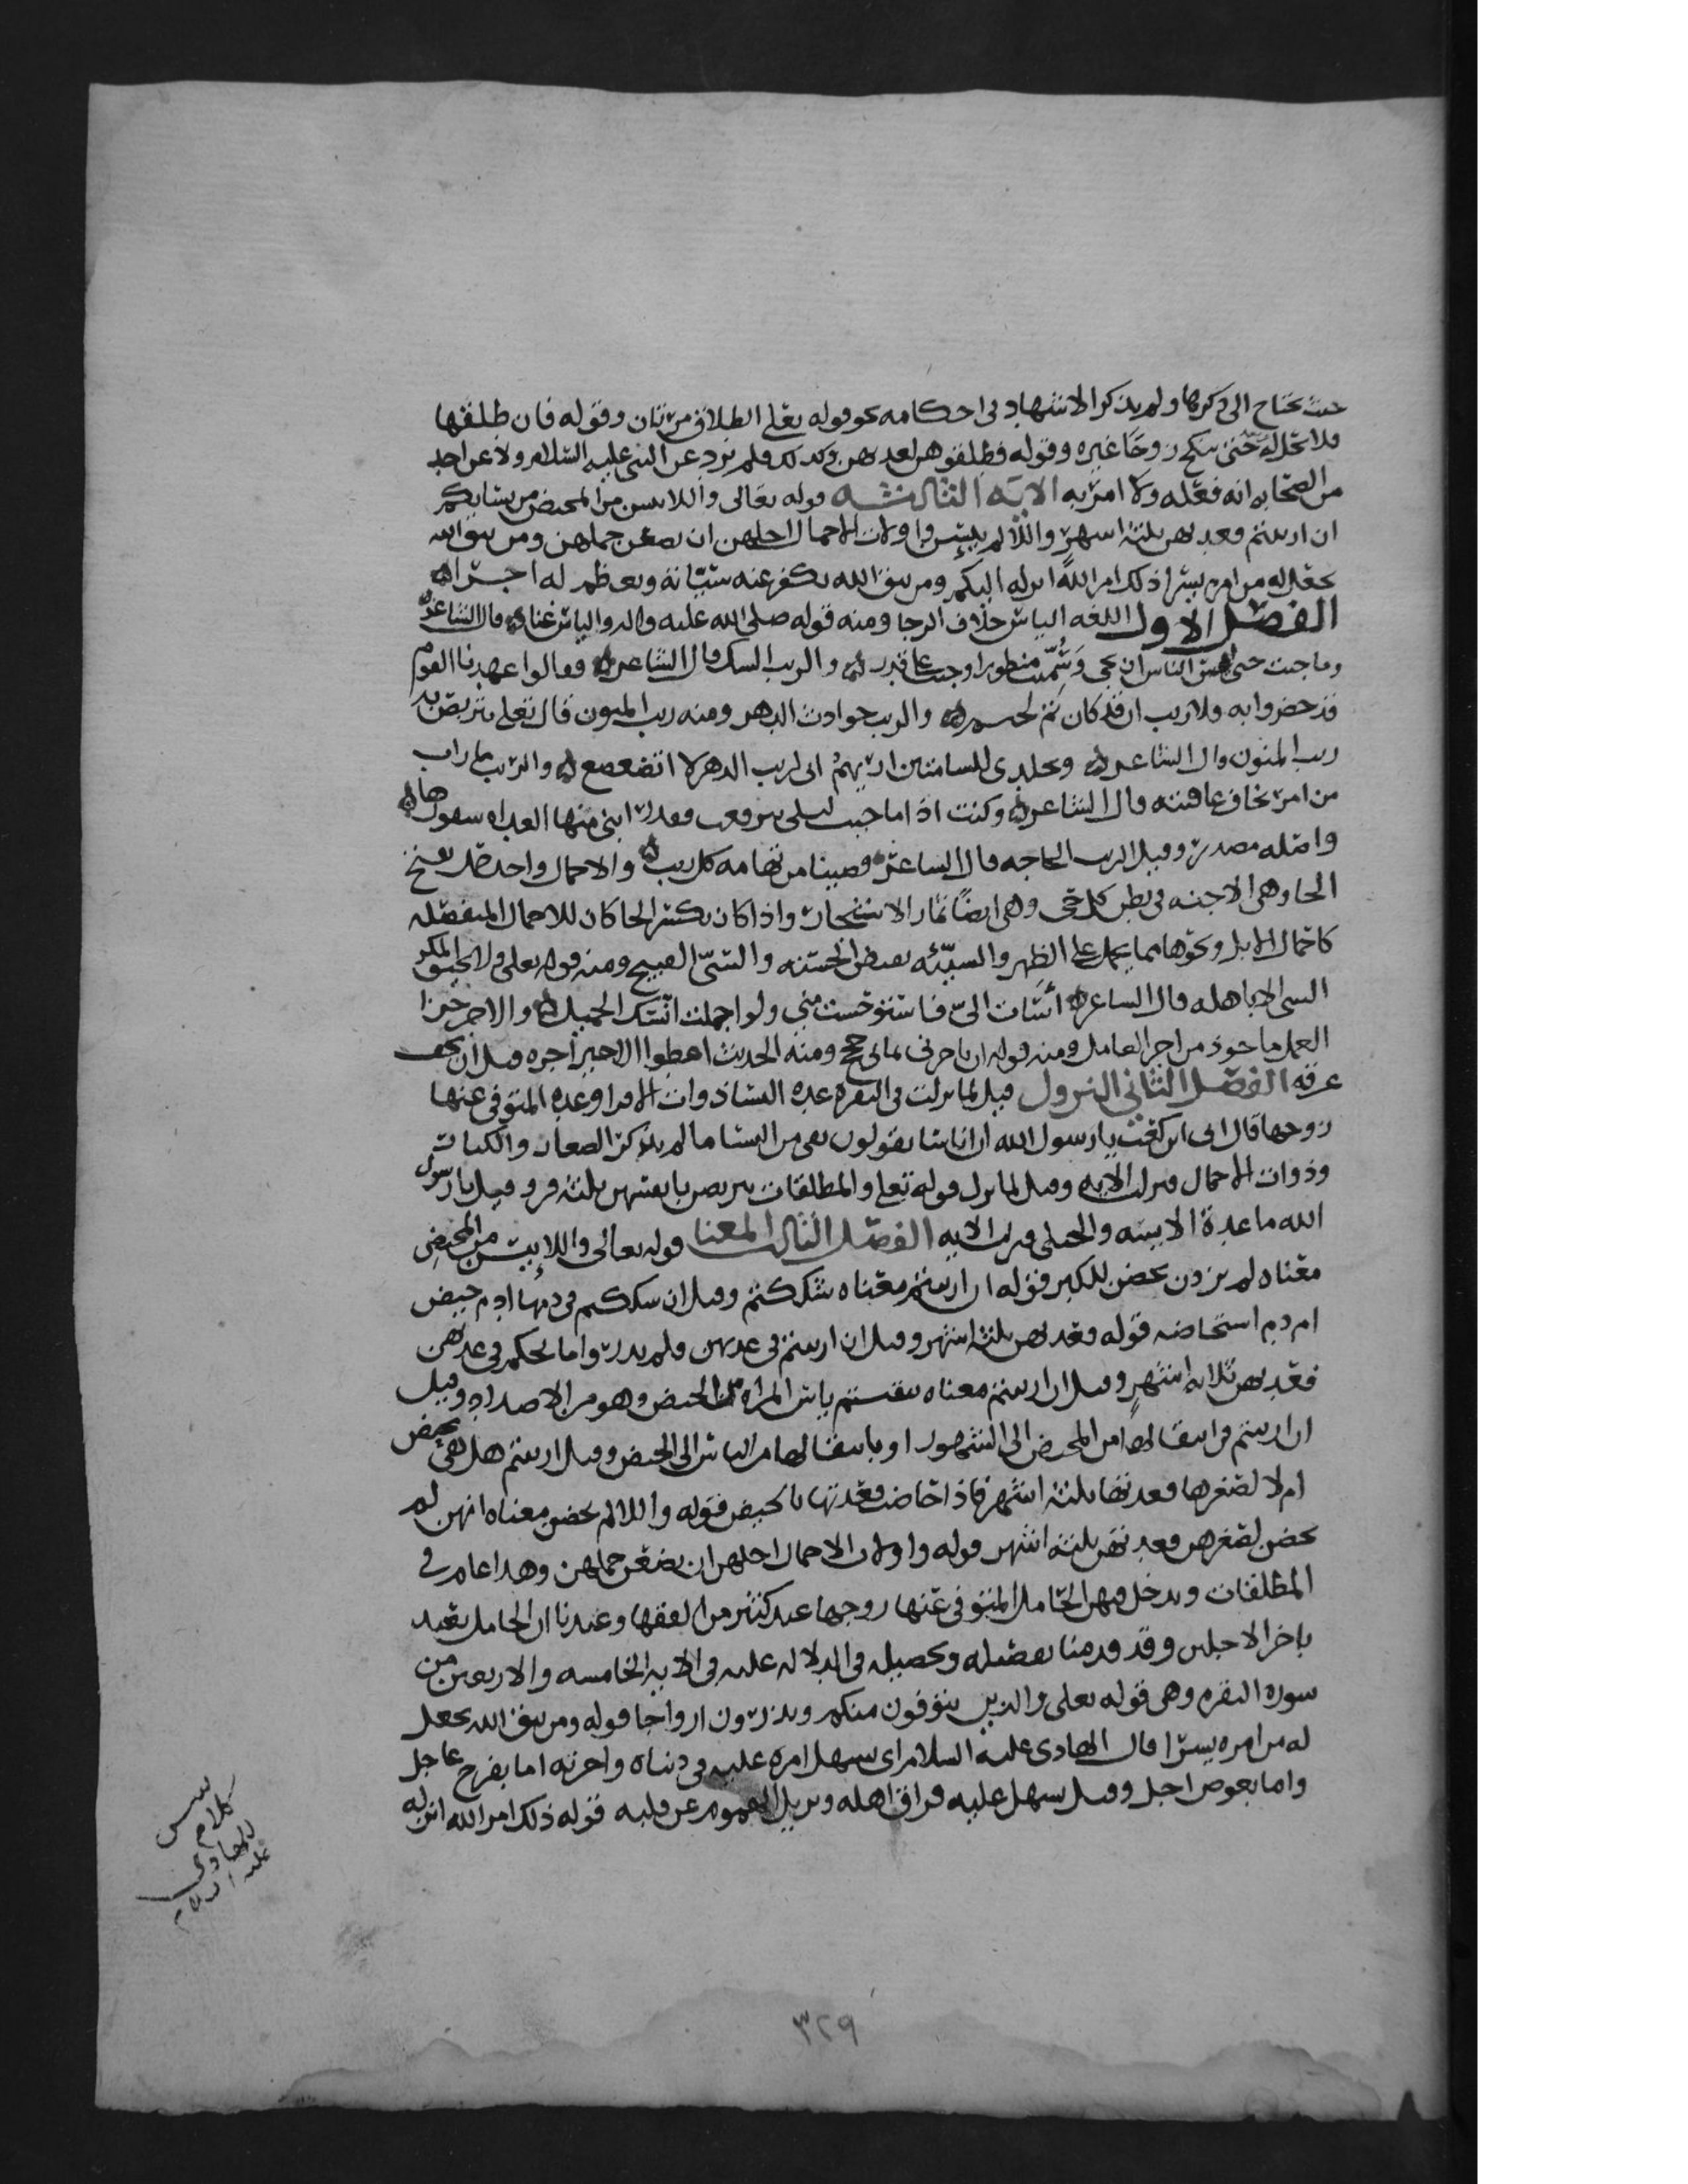 حيث يحتاج الى ذكرها ولم يذكر الاشهاد في احكامه نحو قوله تعلى الطلاق مرتان وقوله فان طلقها
فلا تحل له حتى تنكح زوجا غيره وقوله فطلقوهن لعدتهن وكذلك فلم يرد عن النبي عليه السلام ولا عن احد
من الصحابه انه فعله ولا امر به الايه الثالثه قوله تعالى واللائي يئسن من المحيض من نسايكم
ان ارتبتم فعدتهن ثلثة اشهر واللائي لم يحضن واولات الاحمال اجلهن ان يضعن حملهن ومن يتق الله
يجعل له من امره يسرا ذلك امر الله انزله اليكم ومن يتق الله يكفر عنه سيئاته ويعظم له اجرا
الفصل الاول اللغه الياس خلاف الرجا ومنه قوله صلى الله عليه واله والياس غنا قال الشاعر
وما جيت حتى ايس الناس ان تجي وسميت منظورا وجيت على قدر والريب الشك قال الشاعر فقالوا عهدنا القوم
قد حضروا به فلا ريب ان قد كان ثم لحيم والريب حوادث الدهر ومنه ريب المنون قال تعلى نتربص به
ريب المنون قال الشاعر وتجلدي للشامتين اريهم اني لريب الدهر لا اتضعضع والريب ما راب
من امر تخاف عاقبته قال الشاعر وكنت اذا ما جيت ليلى تبرقعت فقد رابني منها الغداه سفورها
واصله مصدر وقيل الريب الحاجه قال الشاعر قضينا من تهامه كل ريب والاحمال واحدها حمل بفتح
الحا وهي الاجنه في بطن كل حي وهي ايضا ثمار الاشجار واذا كان بكسر الحا كان للاحمال المنفصله
كاحمال الابل ونحوها مما يحمل على الظهر والسيئه نقيض الحسنه والسيئ القبيح ومنه قوله تعلى ولا يحيق المكر
السيئ الا باهله قال الشاعر أسات اليّ فاستوحشت مني ولو اجملت انسك الجميل والاجر جزا
العمل ماخوذ من اجر العامل ومنه قوله ان تاجرني ثماني حجج ومنه الحديث اعطوا الاجير اجره قبل ان يجف
عرقه الفصل الثاني النزول قيل لما نزلت في البقره عده النسا ذوات الاقرا وعده المتوفى عنها
زوجها قال ابي ابن كعب يا رسول الله ان اناسا يقولون بقي من النسا ما لم يذكر الصغار والكبار
وذوات الاحمال فنزلت الايه وقيل لما نزل قوله تعلى والمطلقات يتربصن بانفسهن ثلثة قرو قيل يا رسول
الله ما عدة الايسه والحبلى فنزلت الايه الفصل الثالث المعنا قوله تعالى واللائي يئسن من المحيض
معناه لم يرون يحضن للكبر قوله ان ارتبتم معناه شككتم وقيل ان شككتم في دمها ادم حيض
ام دم استحاضه قوله فعدتهن ثلثة اشهر وقيل ان ارتبتم في عدتهن فلم تدروا ما الحكم في عدتهن
فعدتهن ثلاثه اشهر وقيل ان ارتبتم معناه تيقنتم ياس المراه من الحيض وهو من الاضداد وقيل
ان ارتبتم في انتقالها من المحيض الى الشهور او بانتقالها من الياس الى الحيض وقيل ارتبتم هل هي تحيض
ام لا لصغرها فعدتها ثلثة اشهر فاذا حاضت فعدتها بالحيض قوله واللائي لم يحضن معناه انهن لم
يحضن لصغرهن فعدتهن ثلثة اشهر قوله واولات الاحمال اجلهن ان يضعن حملهن وهذا عام في
المطلقات ويدخل فيهن الحامل المتوفى عنها زوجها عند كثير من الفقها وعندنا ان الحامل تعتد
باخر الاجلين وقد قدمنا تفصيله وتحصيله في الدلاله عليه في الايه الخامسه والاربعين من
سوره البقره وهي قوله تعلى والذين يتوفون منكم ويذرون ازواجا قوله ومن يتق الله يجعل
له من امره يسرا قال الهادي عليه السلام اي يسهل امره عليه في دنياه واخرته اما بفرح عاجل
واما بعوض اجل وقيل يسهل عليه فراق اهله ويزيل الهموم عن قلبه قوله ذلك امر الله انزله
كلام
الهادي
عليه السلام
٣٢٩